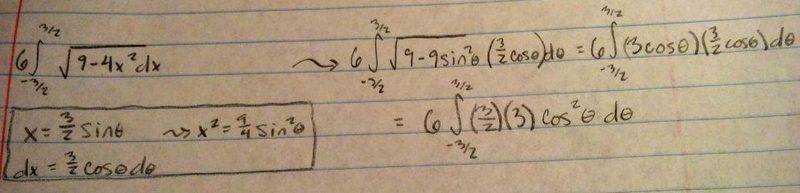 6∫_{-3/2}^{3/2} √(9-4x²) dx ⇝ 6∫_{-3/2}^{3/2} √(9-9sin²θ) (3/2 cosθ)dθ = 6∫_{-3/2}^{3/2} (3cosθ)(3/2 cosθ)dθ
x = 3/2 sinθ ⇝ x² = 9/4 sin²θ
dx = 3/2 cosθdθ
= 6∫_{-3/2}^{3/2} (3/2)(3) cos²θ dθ